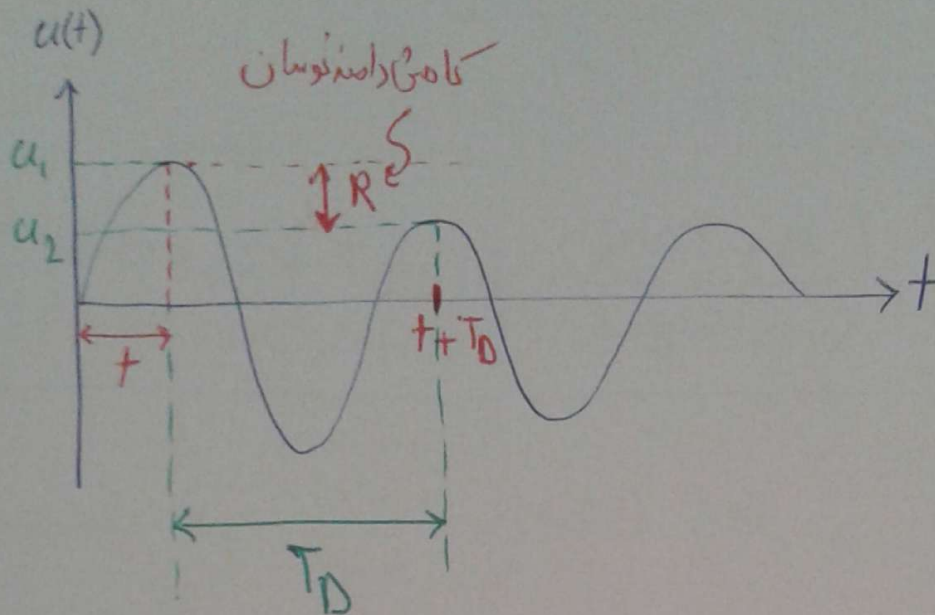 u(t)
کاهش دامنه نوسان
u₁
R
u₂
t
t + T_D
t
T_D